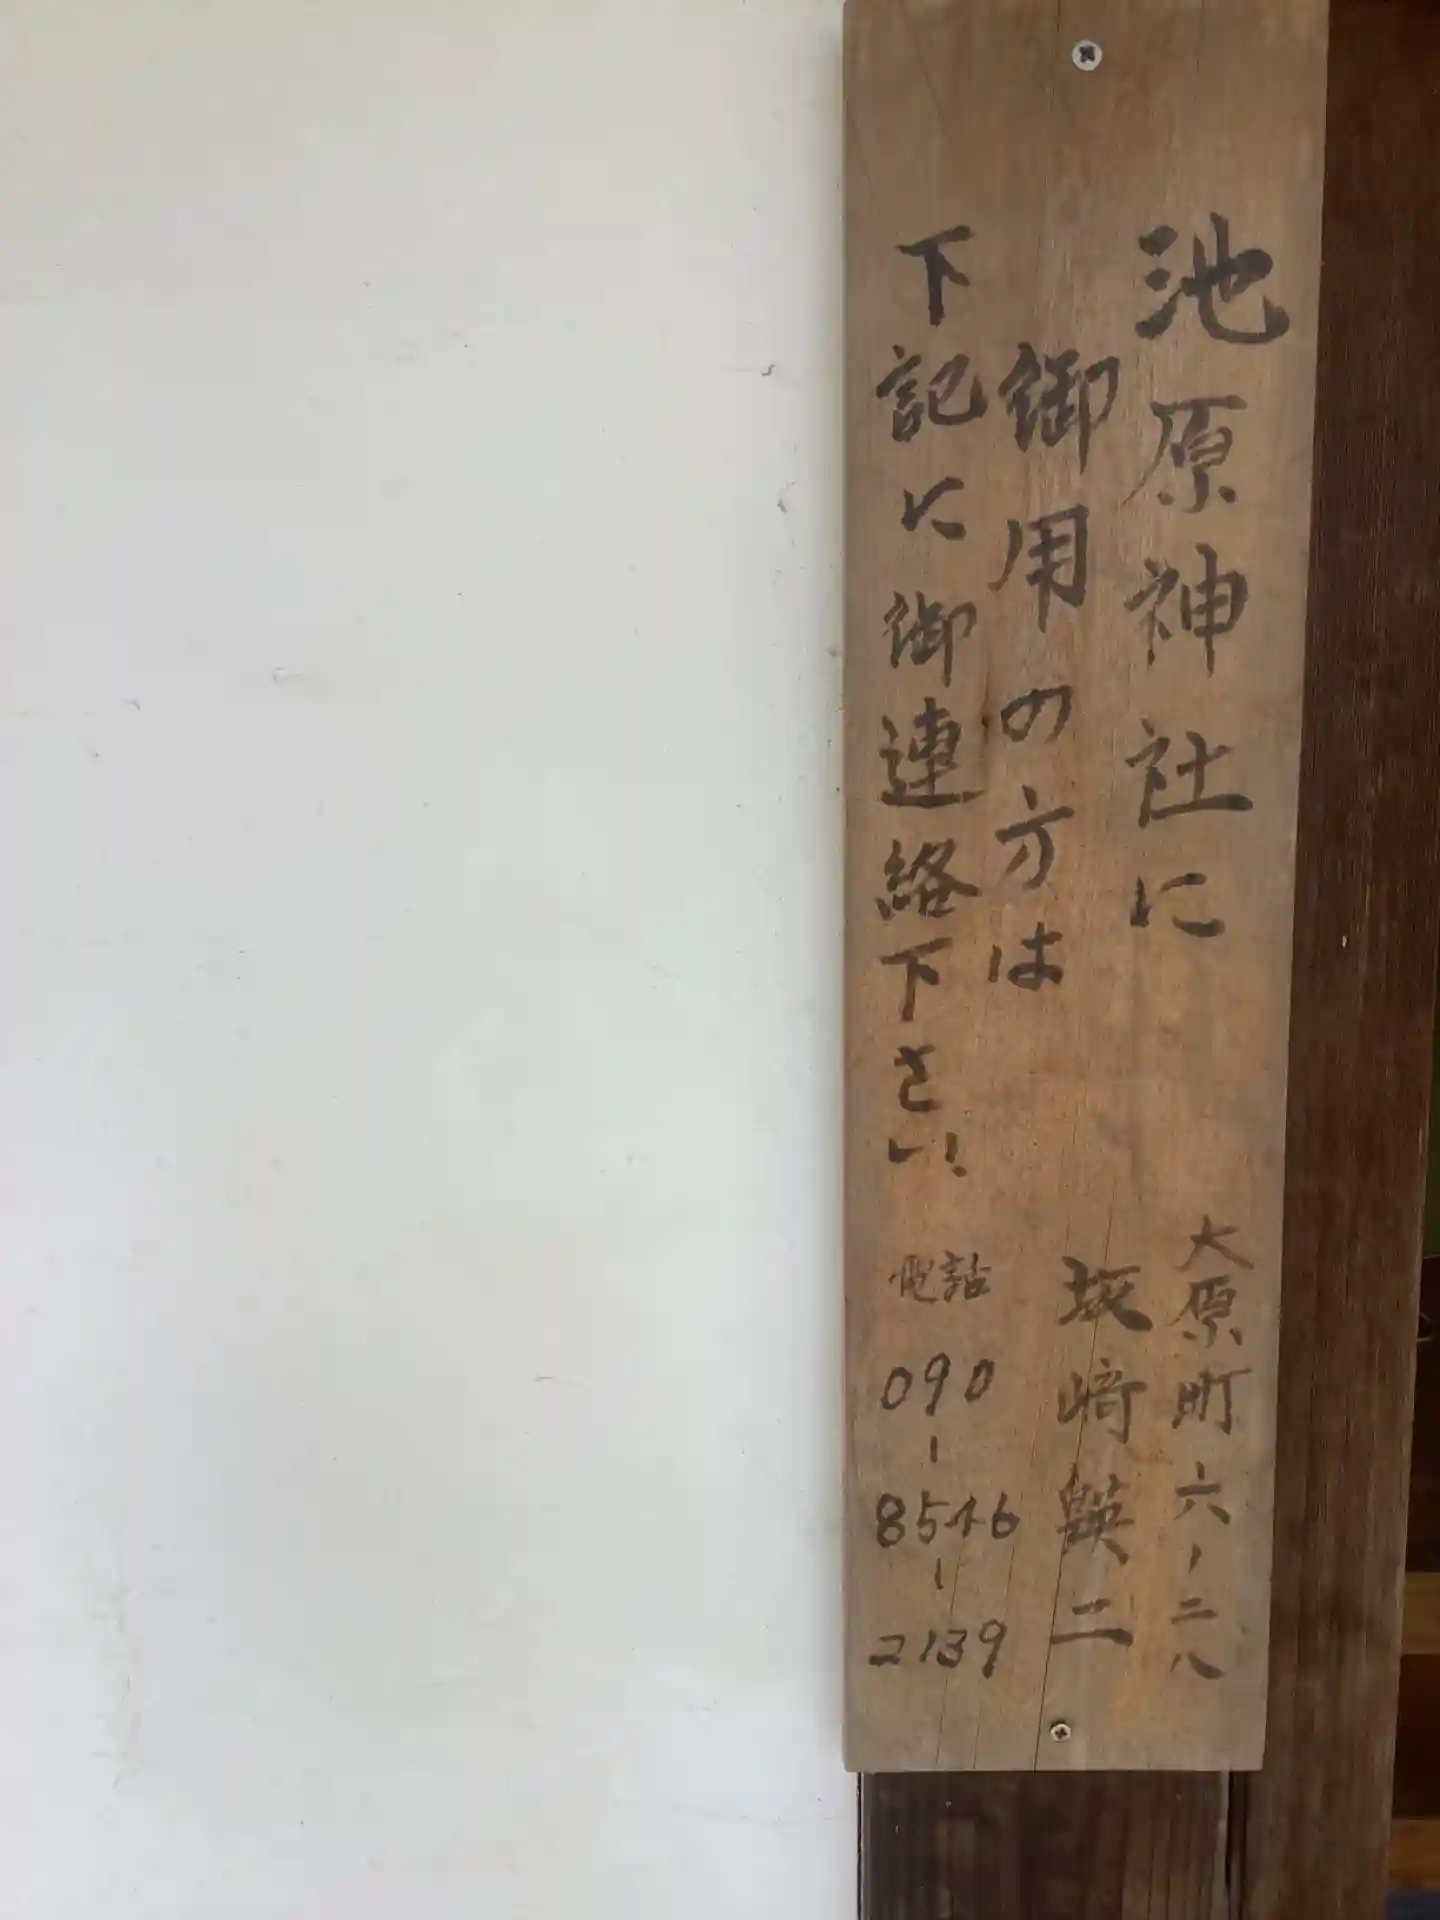 池原神社に
御用の方は
下記に御連絡下さい、
大原町六ー二八
坂﨑 二
電話
090
ー
8546
ー
2139